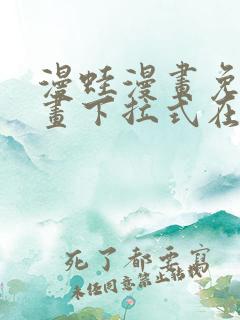 漫蛙漫畫免
畫下拉式在
死了都要寫
未经同意禁止转载